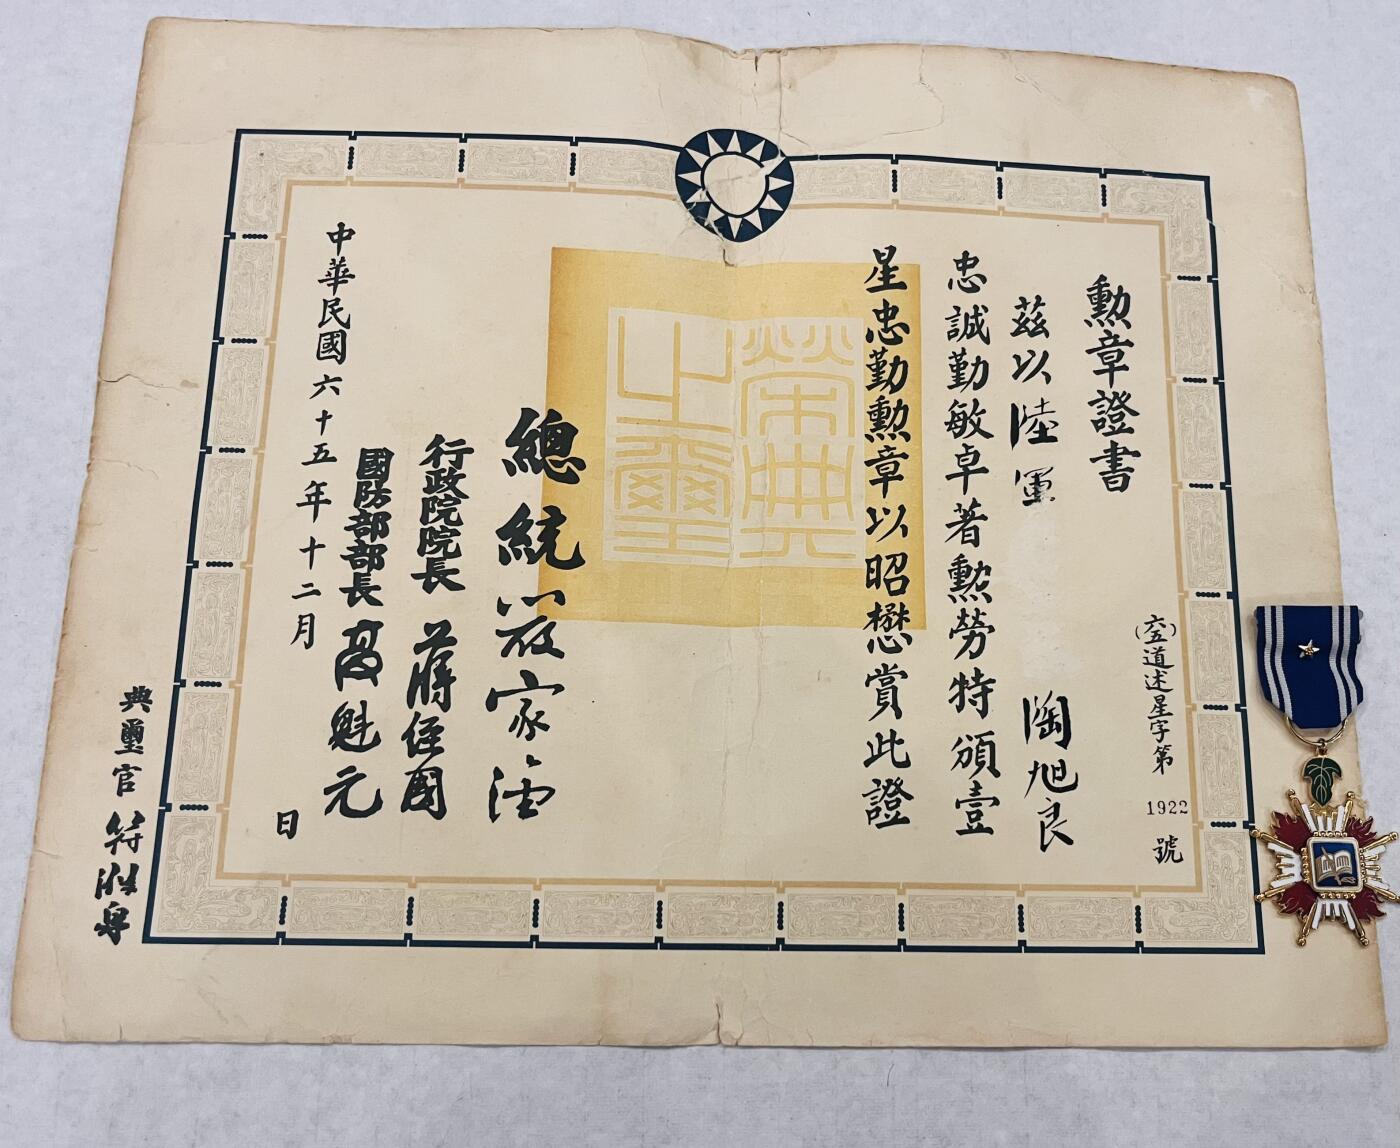 勳章證書
(六五)道述星字第1922號
茲以陸軍 陶旭良
忠誠勤敏卓著勳勞特頒壹
星忠勤勳章以昭懋賞此證
榮典之璽
總統 嚴家淦
行政院院長 蔣經國
國防部部長 高魁元
中華民國六十五年十二月 日
典璽官 符滌泉